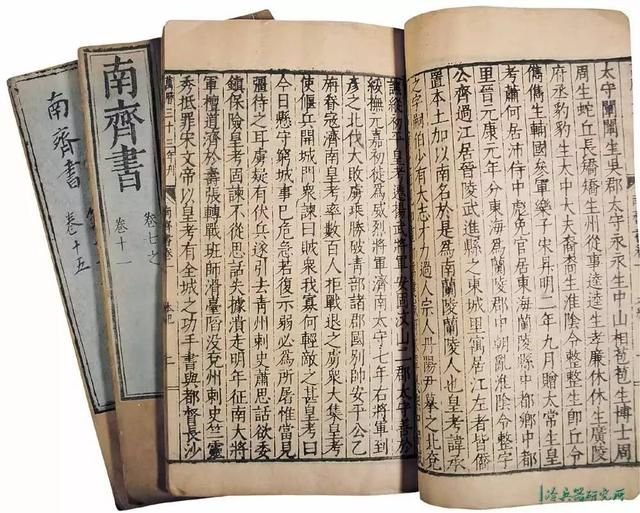 太守闡闡生吳郡太守永永生中山相苞苞生博士周
周生蛇丘長矯矯生州從事逵逵生孝廉休休生廣陵
府丞豹豹生太中大夫裔裔生淮陰令整整生即丘令
儁儁生輔國參軍樂子宋昇明二年九月贈太常生皇
考蕭何居沛侍中彪免官居東海蘭陵縣中都鄉中都
里晉元康元年分東海為蘭陵中朝亂淮陰令整字
公齊過江居晉陵武進縣之東城里寓居江左者皆僑
置本土加以南名於是為南蘭陵蘭陵人也皇考諱承
之字嗣伯少有大志才力過人宗人丹陽尹摹之北兗
議繇初平皇考遷揚武將軍安固汶山二郡太守善於
綏撫元嘉初徙為威烈將軍濟南太守七年右將軍到
彥之北伐大敗虜乘勝破青部諸郡國別帥安平公乙
旃眷寇濟南皇考率數百人拒戰退之虜衆大集皇考
使偃兵開城門衆諫曰賊衆我寡何輕敵之甚皇考曰
今日懸守窮城事已危急若復示弱必為所屠惟當見
彊待之耳虜疑有伏兵遂引去青州刺史蕭思話欲委
鎮保險皇考固諫不從思話失據潰走明年征南大將
軍檀道濟於壽張轉戰班師滑臺䧟没兗州刺史竺靈
秀抵罪宋文帝以皇考有全城之功手書與都督長沙
萬曆三十三年刊 南齊書卷一 本紀 二
南齊書
卷七之
卷十一
南齊書
卷十五
冷兵器研究所